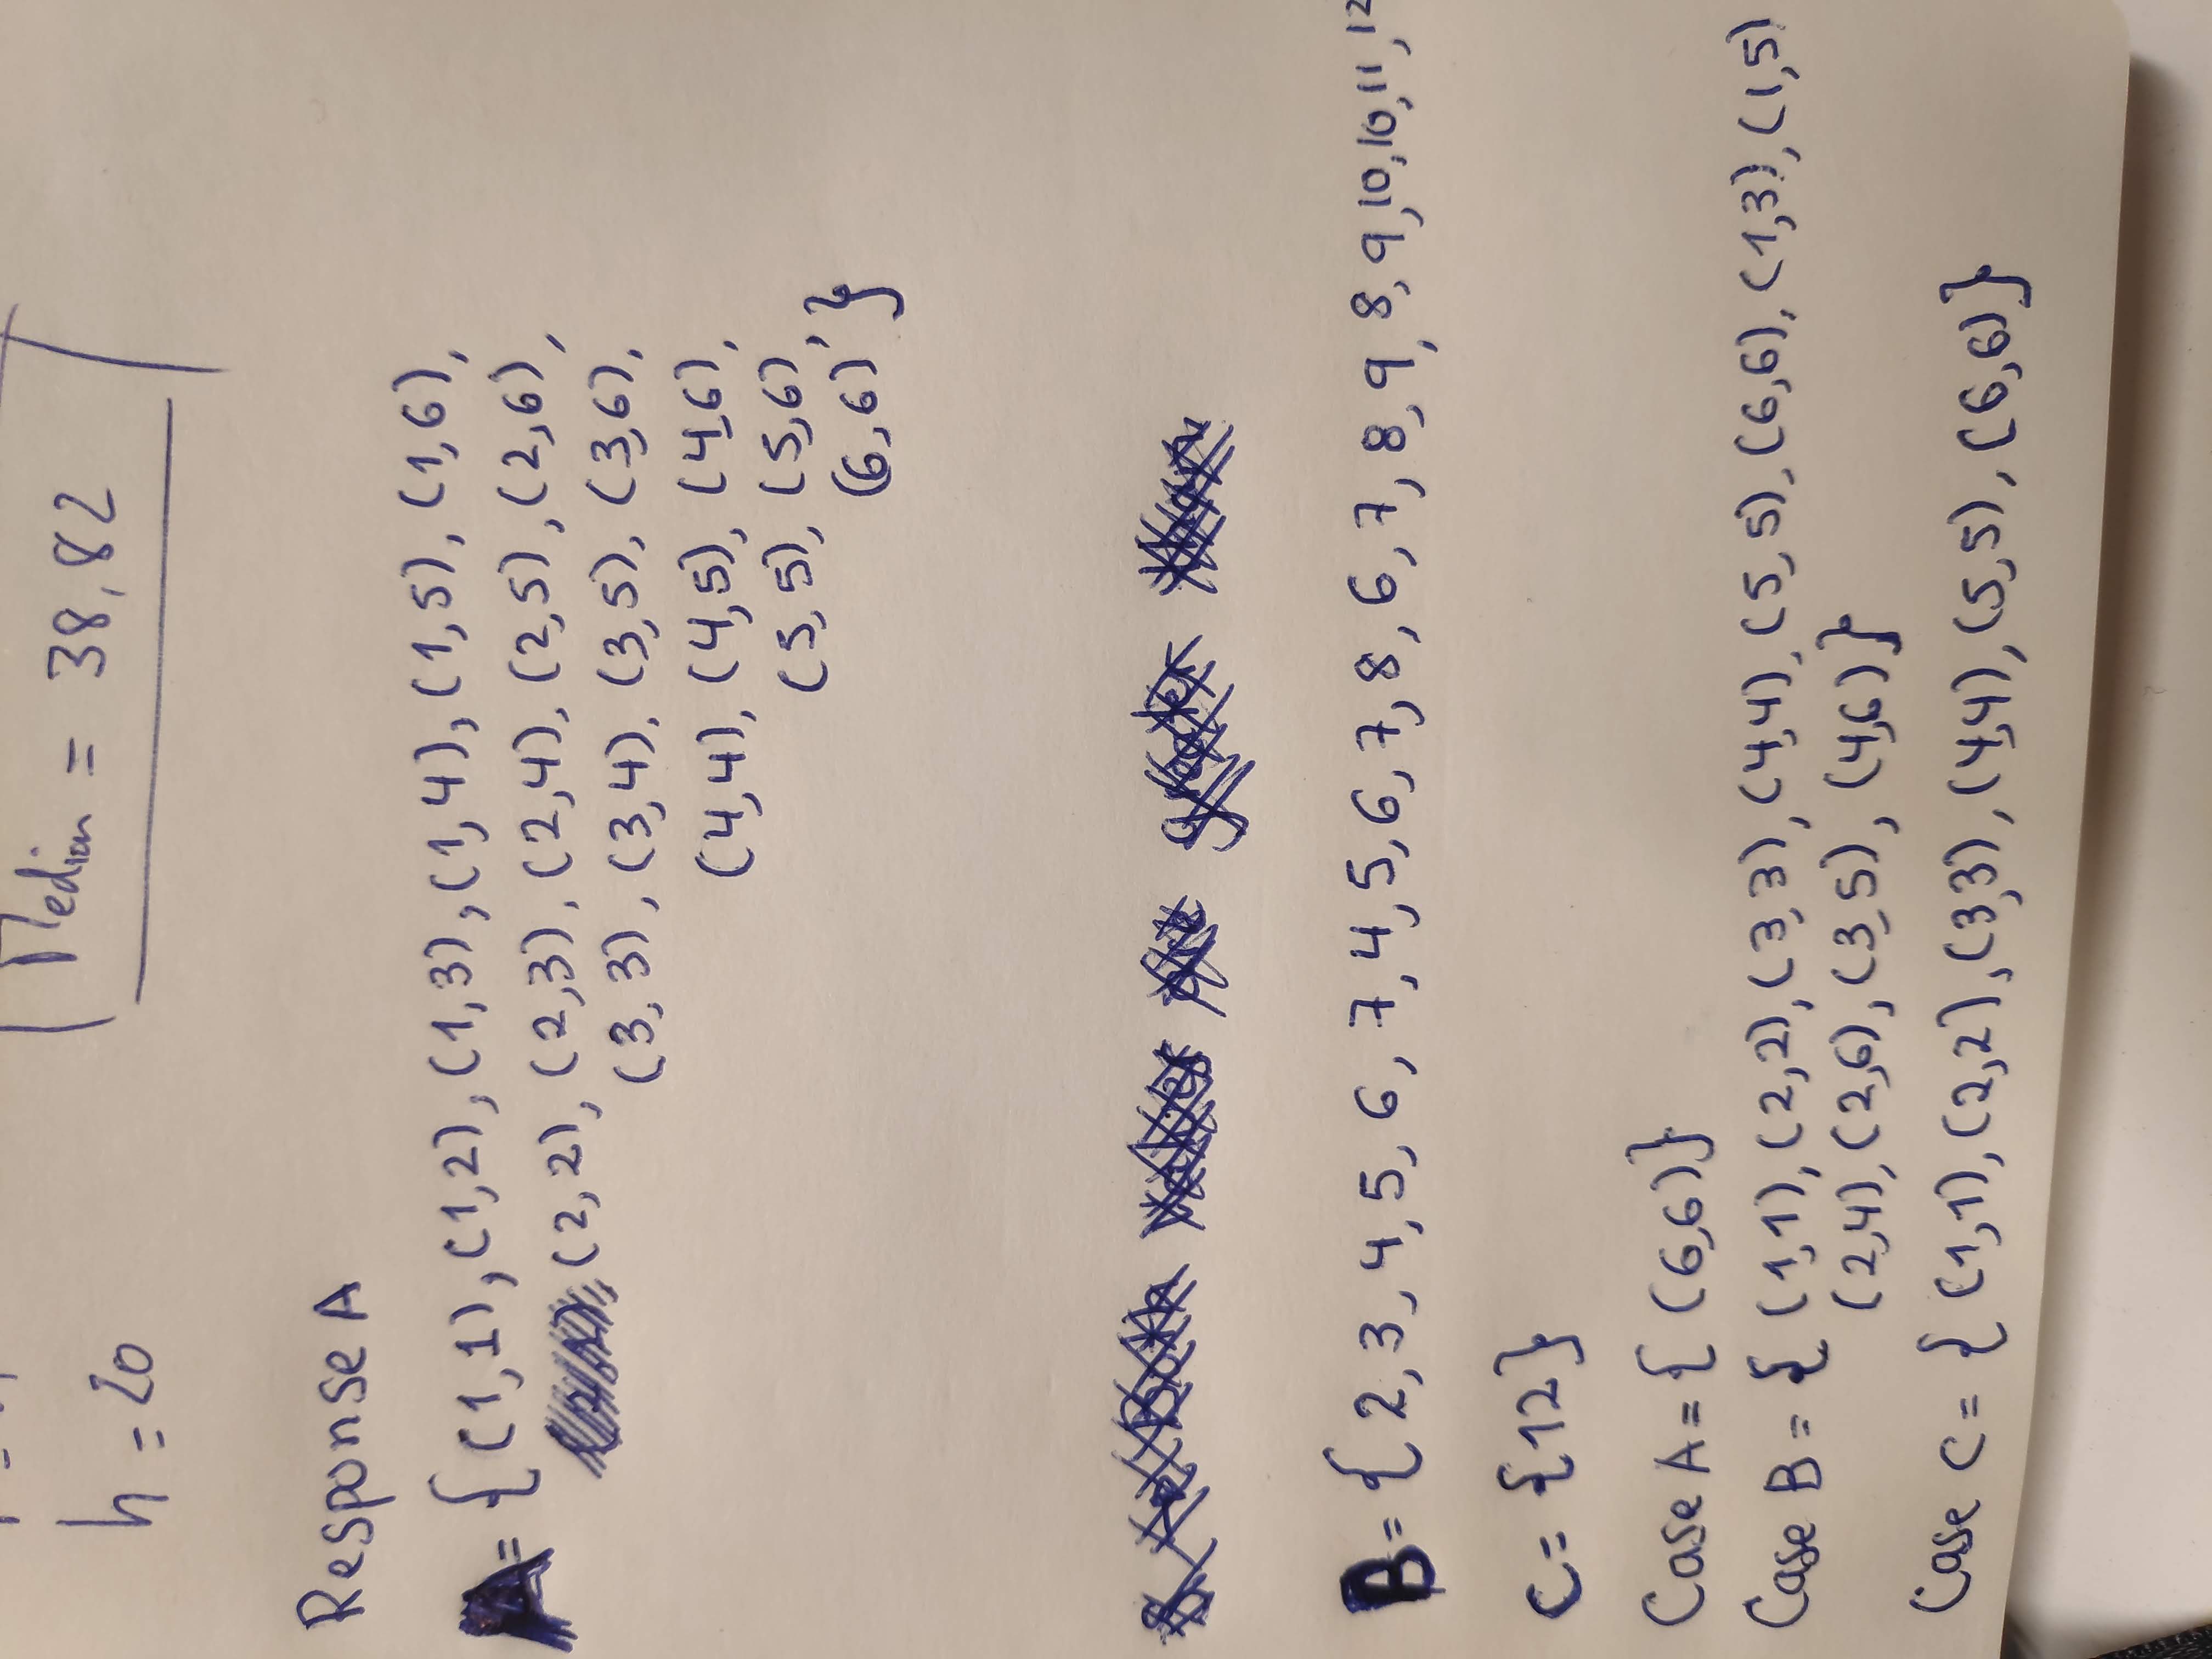 h = 20
Median = 38,82
Response A
A = { (1,1), (1,2), (1,3), (1,4), (1,5), (1,6),
(2,2), (2,3), (2,4), (2,5), (2,6),
(3,3), (3,4), (3,5), (3,6),
(4,4), (4,5), (4,6),
(5,5), (5,6),
(6,6) }
Both are greater than
B = { 2, 3, 4, 5, 6, 7, 4, 5, 6, 7, 8, 6, 7, 8, 9, 8, 9, 10, 10, 11, 12
C = {12}
Case A = { (6,6)}
Case B = { (1,1), (2,2), (3,3), (4,4), (5,5), (6,6), (1,3), (1,5)
(2,4), (2,6), (3,5), (4,6)}
Case C = { (1,1), (2,2), (3,3), (4,4), (5,5), (6,6)}